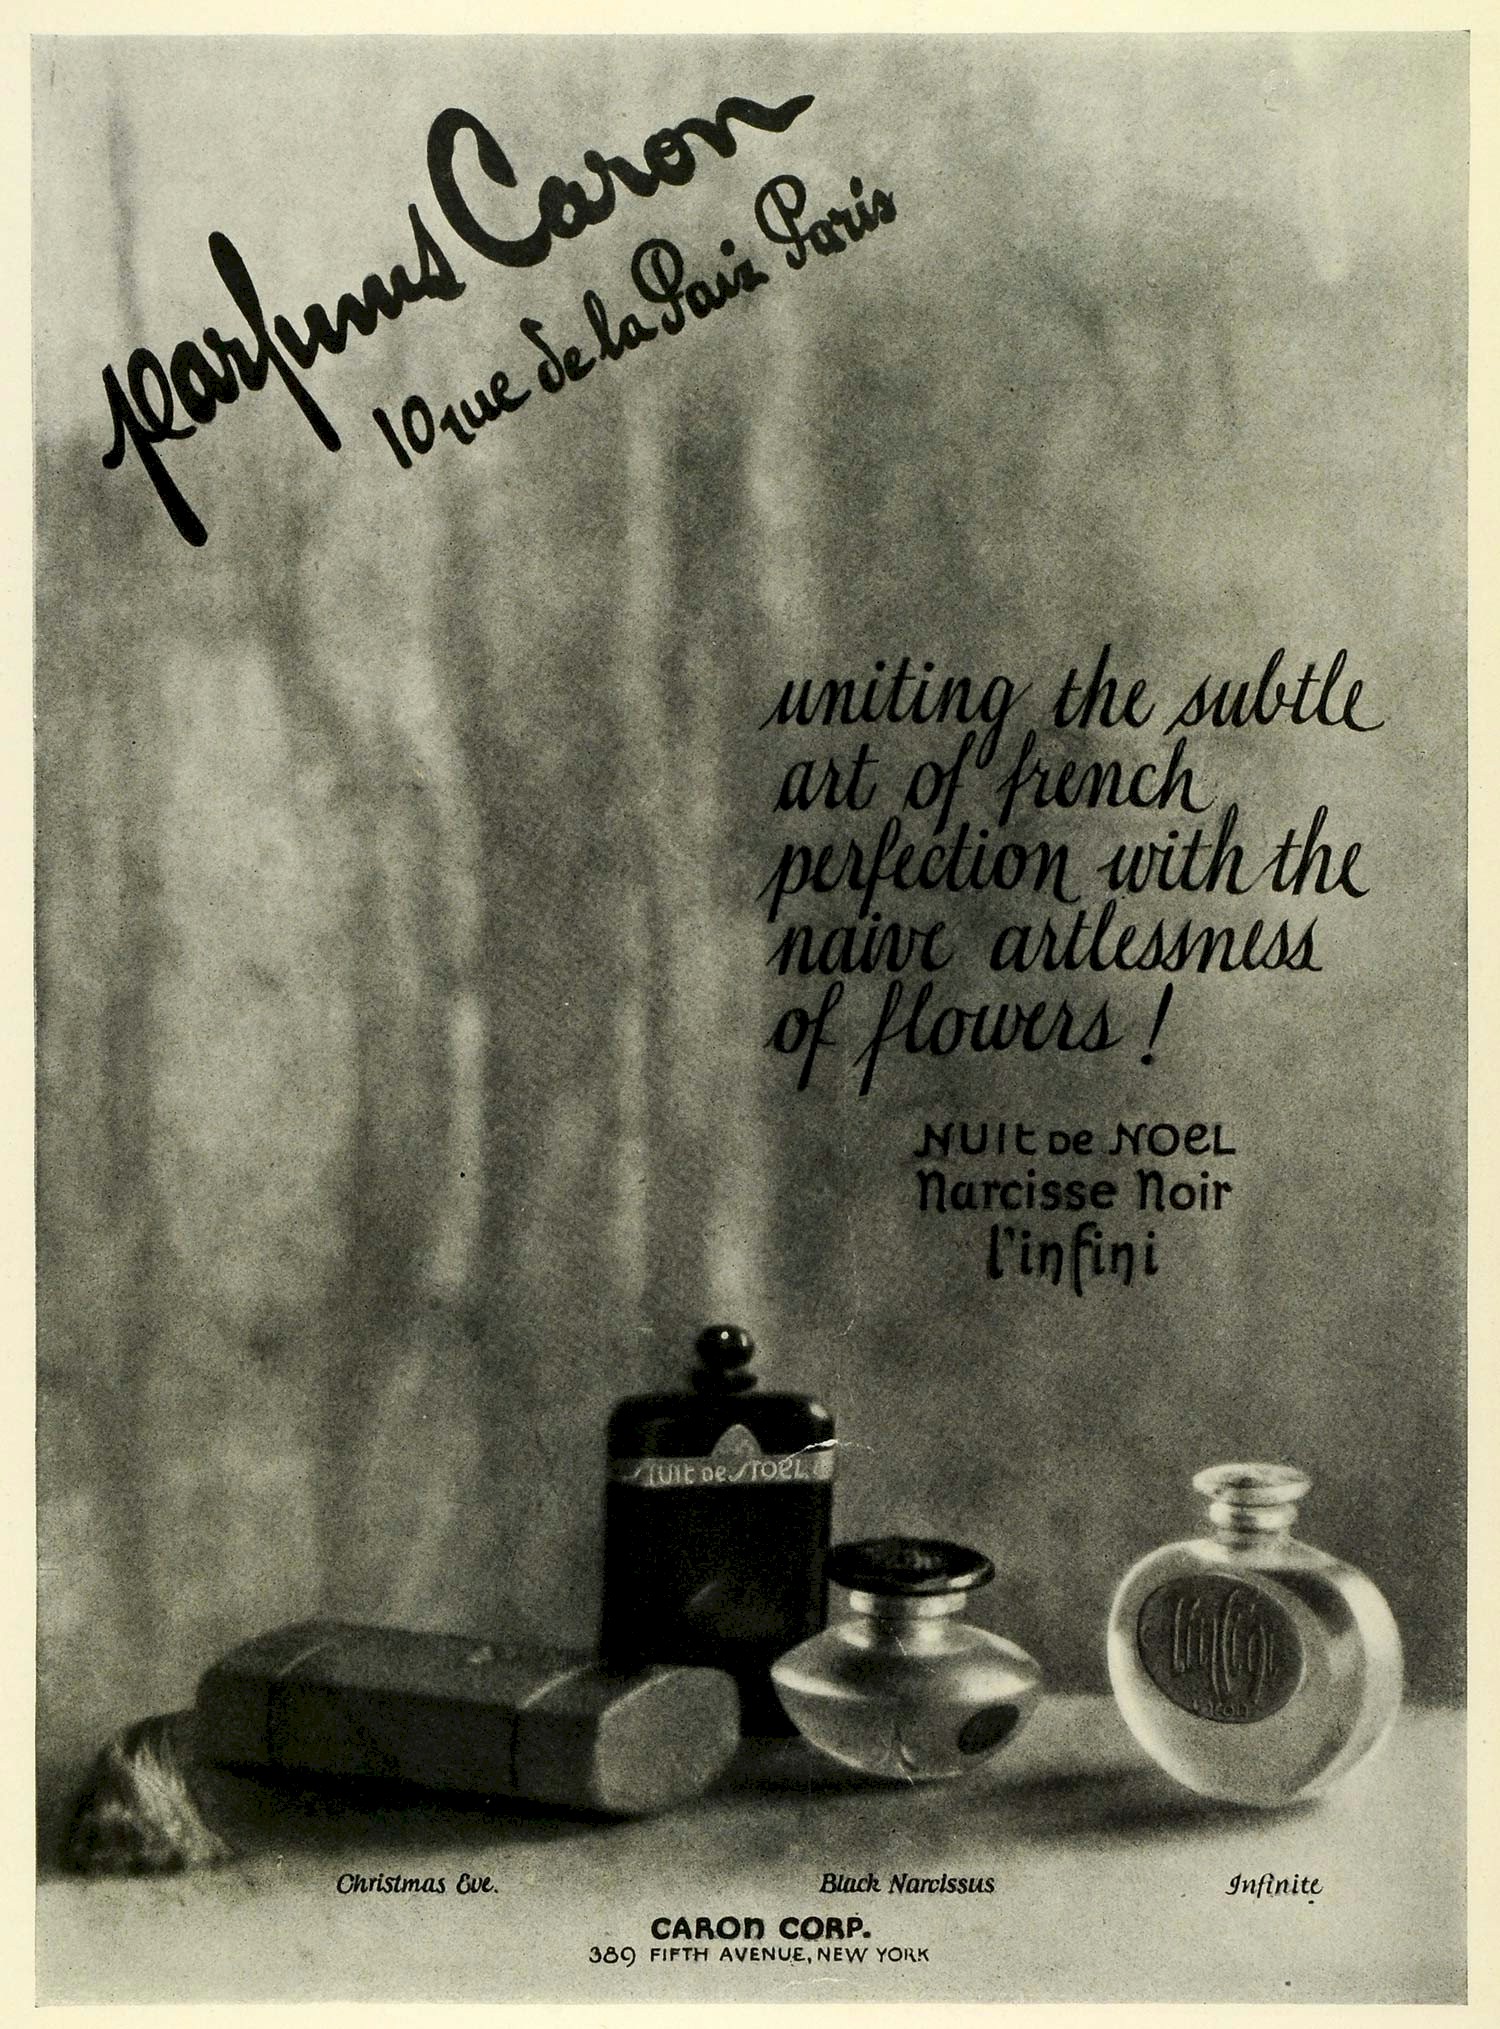 parfums Caron
10 rue de la Paix Paris
uniting the subtle
art of french
perfection with the
naive artlessness
of flowers!
NUIt De NOeL
Narcisse Noir
l'infini
NUIt De NOeL
l'infini
CARON
Christmas Eve.
Black Narcissus
Infinite
CARON CORP.
389 FIFTH AVENUE, NEW YORK